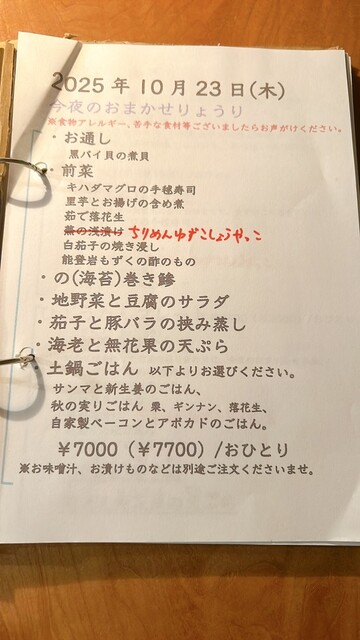 2025年10月23日(木)
今夜のおまかせりょうり
※食物アレルギー、苦手な食材等ございましたらお声がけください。
・お通し
黒バイ貝の煮貝
・前菜
キハダマグロの手毬寿司
里芋とお揚げの含め煮
茹で落花生
蕪の浅漬け ちりめんゆずこしょうやっこ
白茄子の焼き浸し
能登岩もずくの酢のもの
・の(海苔)巻き鯵
・地野菜と豆腐のサラダ
・茄子と豚バラの挟み蒸し
・海老と無花果の天ぷら
土鍋ごはん 以下よりお選びください。
サンマと新生姜のごはん、
秋の実りごはん 栗、ギンナン、落花生、
自家製ベーコンとアボカドのごはん。
￥7000（￥7700）/おひとり
※お味噌汁、お漬けものなどは別途ご注文くださいませ。